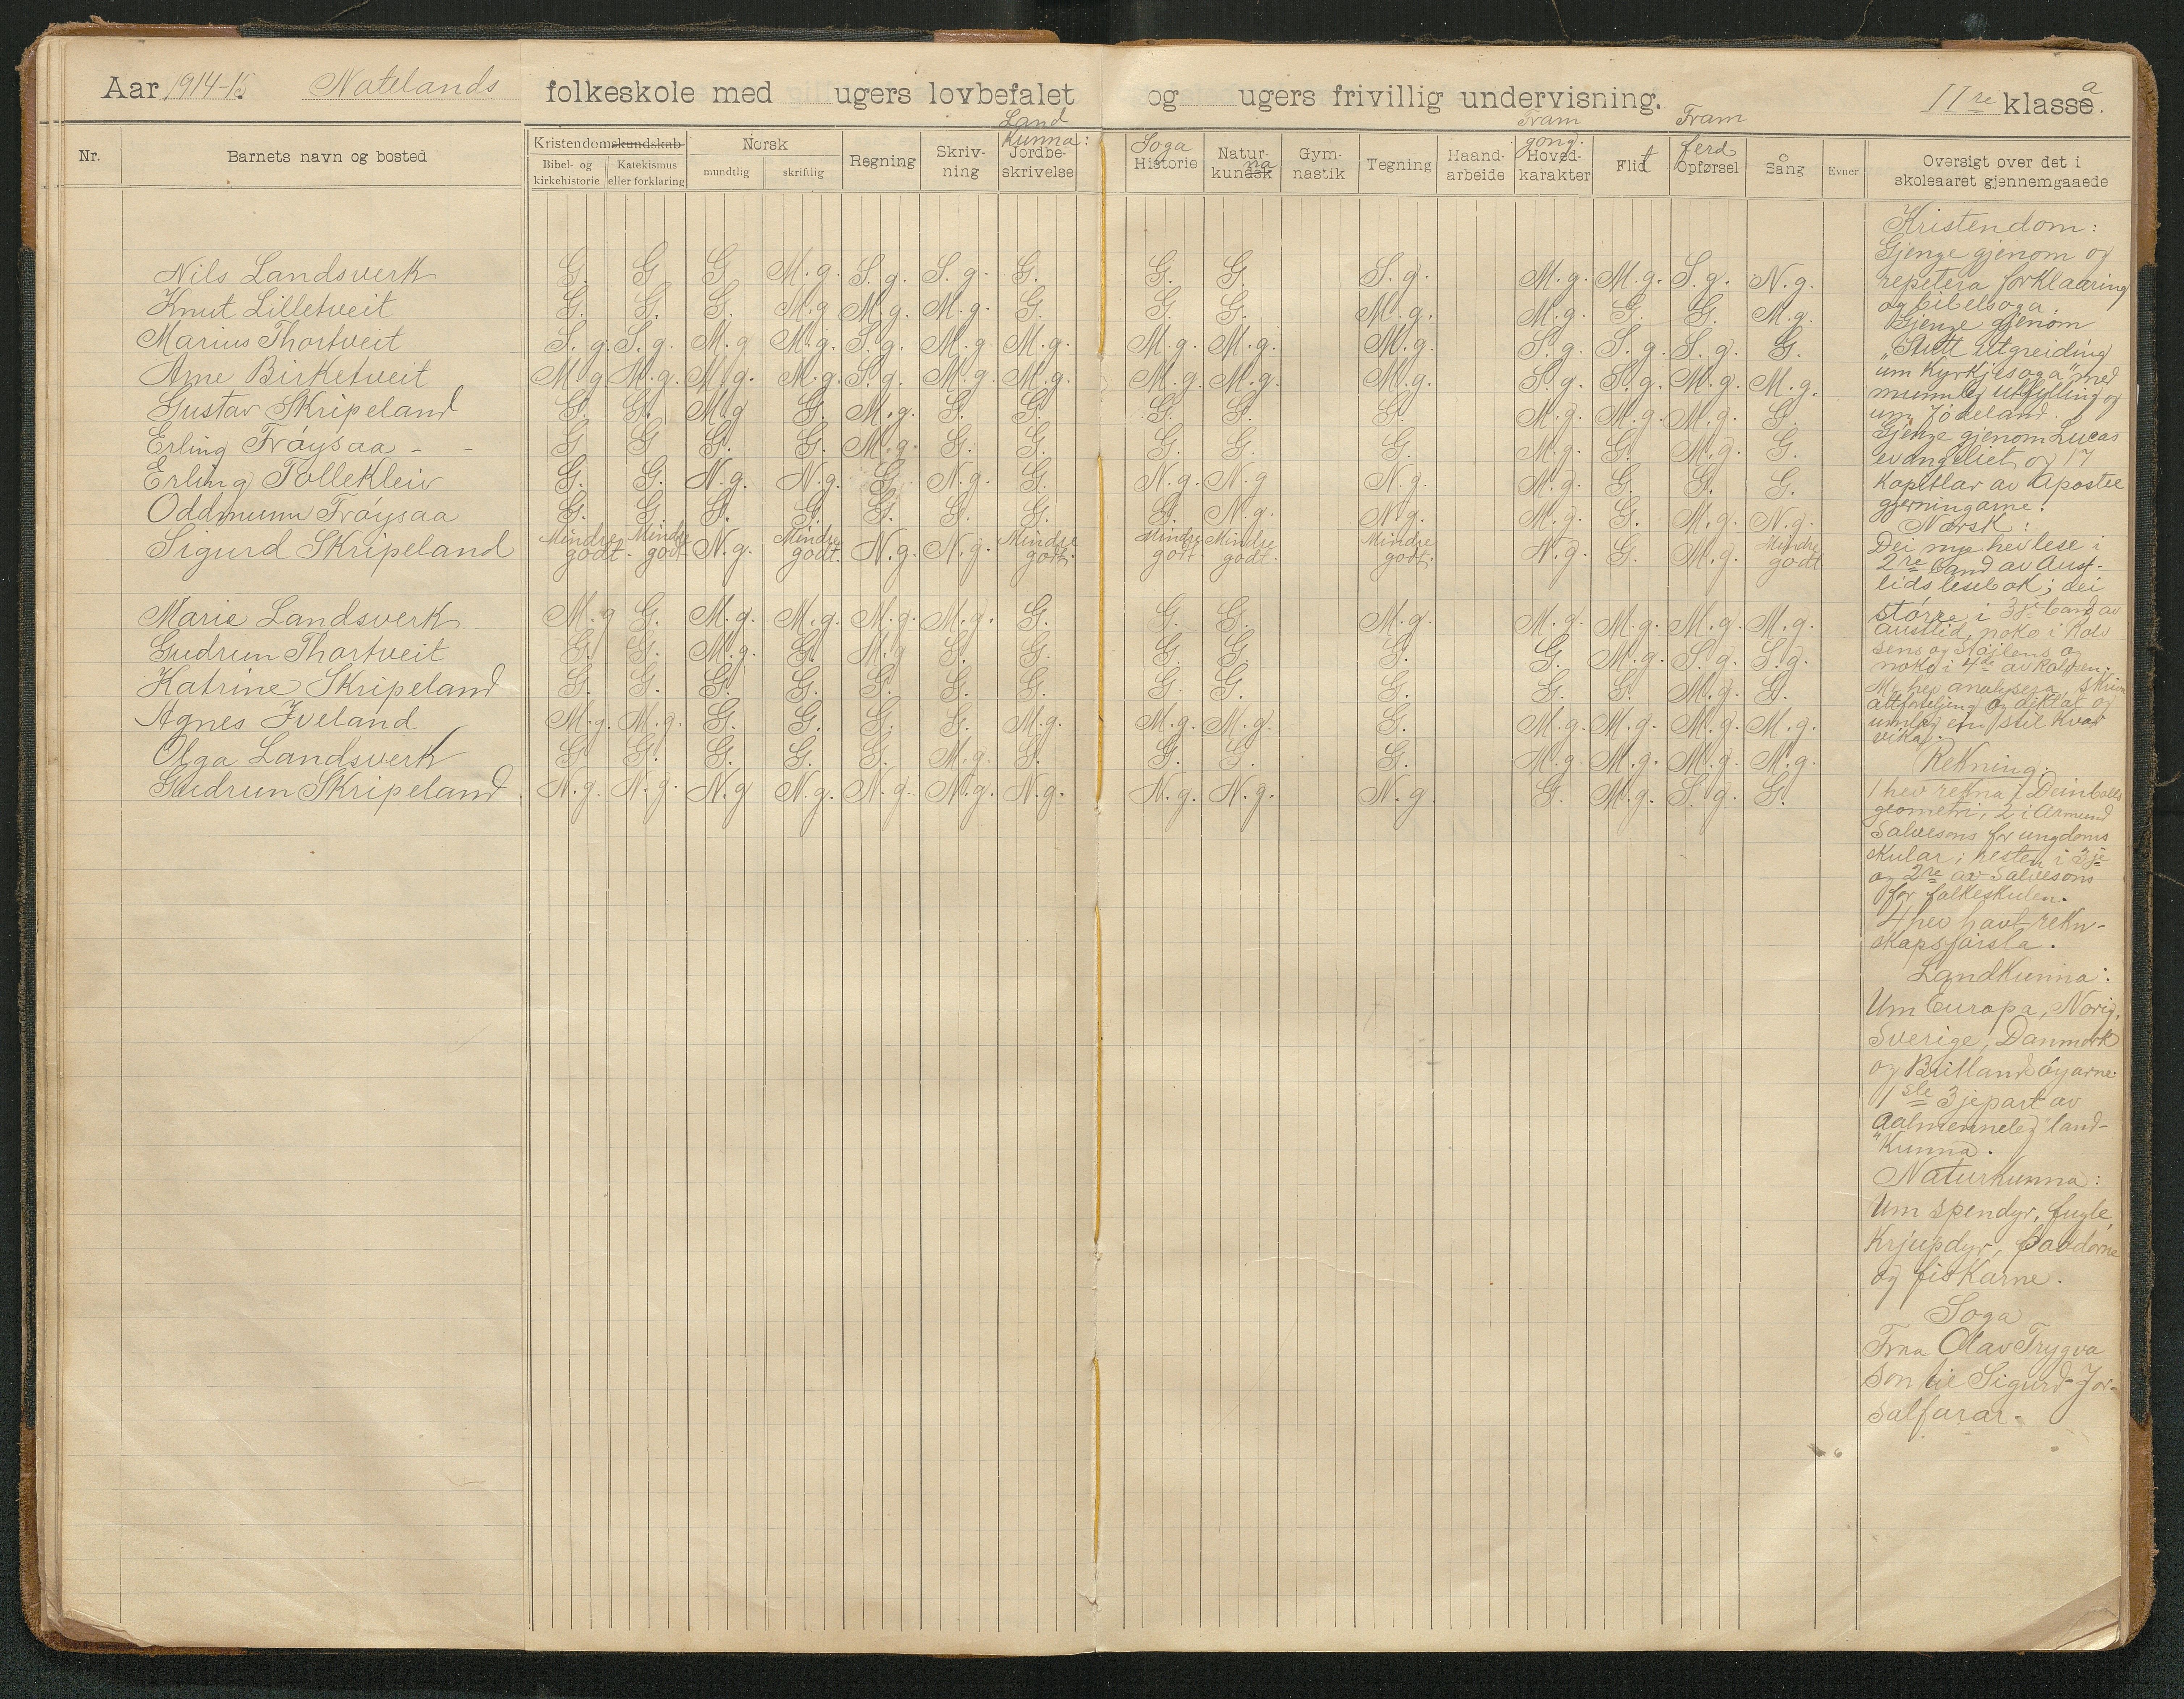 Aar 1914-15. Natelands folkeskole med ugers lovbefalet og ugers frivillig undervisning. IIre klasse. a
Land Kunna: Soga na Fram gong. t Fram ferd
Nr. Barnets navn og bosted Kristendomskundskab Norsk Regning Skriv-ning Jordbe-skrivelse Historie Natur-kundsk Gym-nastik Tegning Haand-arbeide Hoved-karakter Flid Opførsel Sång Evner Oversigt over det i skoleaaret gjennemgaaede
Bibel- og kirkehistorie Katekismus eller forklaring mundtlig skriftlig
Nils Landsverk G. G G M.g. S.g. S.g. G. G. G. S.g. M.g. M.g. S.g. N.g.
Knut Lilletveit G. G. G. M.g M.g. M.g. G. G. G. M.g. M.g. G. G. M.g.
Marius Thortveit S.g. S.g. M.g M.g. S.g. M.g. M.g. M.g. M.g. M.g. S.g. S.g. S.g. G.
Arne Birketveit M.g. M.g. M.g. M.g. S.g. M.g. M.g. M.g. M.g. M.g. S.g. S.g. M.g. M.g.
Gustav Skripeland G. G. M.g G. M.g. G. G. G. G. G. M.g. M.g. M.g. G.
Erling Frøysaa - - G G G. G. M.g. G. G. G. G. G. M.g. G. M.g. G.
Erling Tollekleiv G. G. N.g. N.g. G. N.g. G. N.g. N.g N.g. M.g. G. G. G.
Oddmunn Frøysaa G. G. G. G. G. G. G. G. N.g. N.g. M.g. G. M.g. N.g.
Sigurd Skripeland Mindre godt - Mindre godt N.g. Mindre godt. N.g. N.g. Mindre godt. Mindre godt. Mindre godt. Mindre godt. N.g. G. M.g. Mindre godt
Marie Landsverk M.g G. M.g. M.g. M.g. M.g. G. G. G. M.g. M.g. M.g. M.g. M.g.
Gudrun Thortveit G. G. M.g. G. M.g G. G. G. G. G. G. M.g. S.g. S.g.
Katrine Skripeland G. G. G. G. G. G. G. G. G. G. G. G. M.g. G.
Agnes Iveland M.g. M.g. G. G. G. G. M.g. M.g. M.g. G. M.g. M.g. M.g. M.g.
Olga Landsverk G G. G. G. G. M.g. G. G. G. G. M.g. M.g. M.g. M.g.
Gudrun Skripeland N.g. N.g. N.g N.g. N.g. N.g. N.g. N.g. N.g. N.g. G. M.g. S.g. G.
Kristendom:
Gjenge gjenom og
repetera forklaaring
og bibelsoga.
Gjenge gjenom
"Stutt utgreiding
um Kyrkjesoga" med
munnleg utfylling og
um Jødeland.
Gjenge gjenom Lucas
evangeliet og 17
kapitlar av Apostel
gjerningarne.
Norsk:
Dei nye hev lese i
2re band av Aust-
lids lesebok; dei
større i 3je band av
Austlid, noko i Rolv
sens og
noko i 4de av Rolfsen.
Me hev analysera, skriv
attforteljing og diktat og
umlag ein stil kvar
vika.
Rekning:
1 hev rekna i Deinbolls
geometri, 2 i Asmund
Salvesons for ungdoms
skular; resten i 3je
og 2re av Salvesons
for folkeskulen.
4 hev havt rekn-
skapsførsla.
Landkunna:
Um Europa, Norig,
Sverige, Danmork
og Brittlandsøyarne.
1ste 3jepart av
Aalmenneleg land-
"kunna.
Naturkunna:
Um spendyr, fugle,
Krjupdyr, paddorne
og fiskarne.
Soga
Fraa Olav Trygva
son til Sigurd Jor-
salfarar.